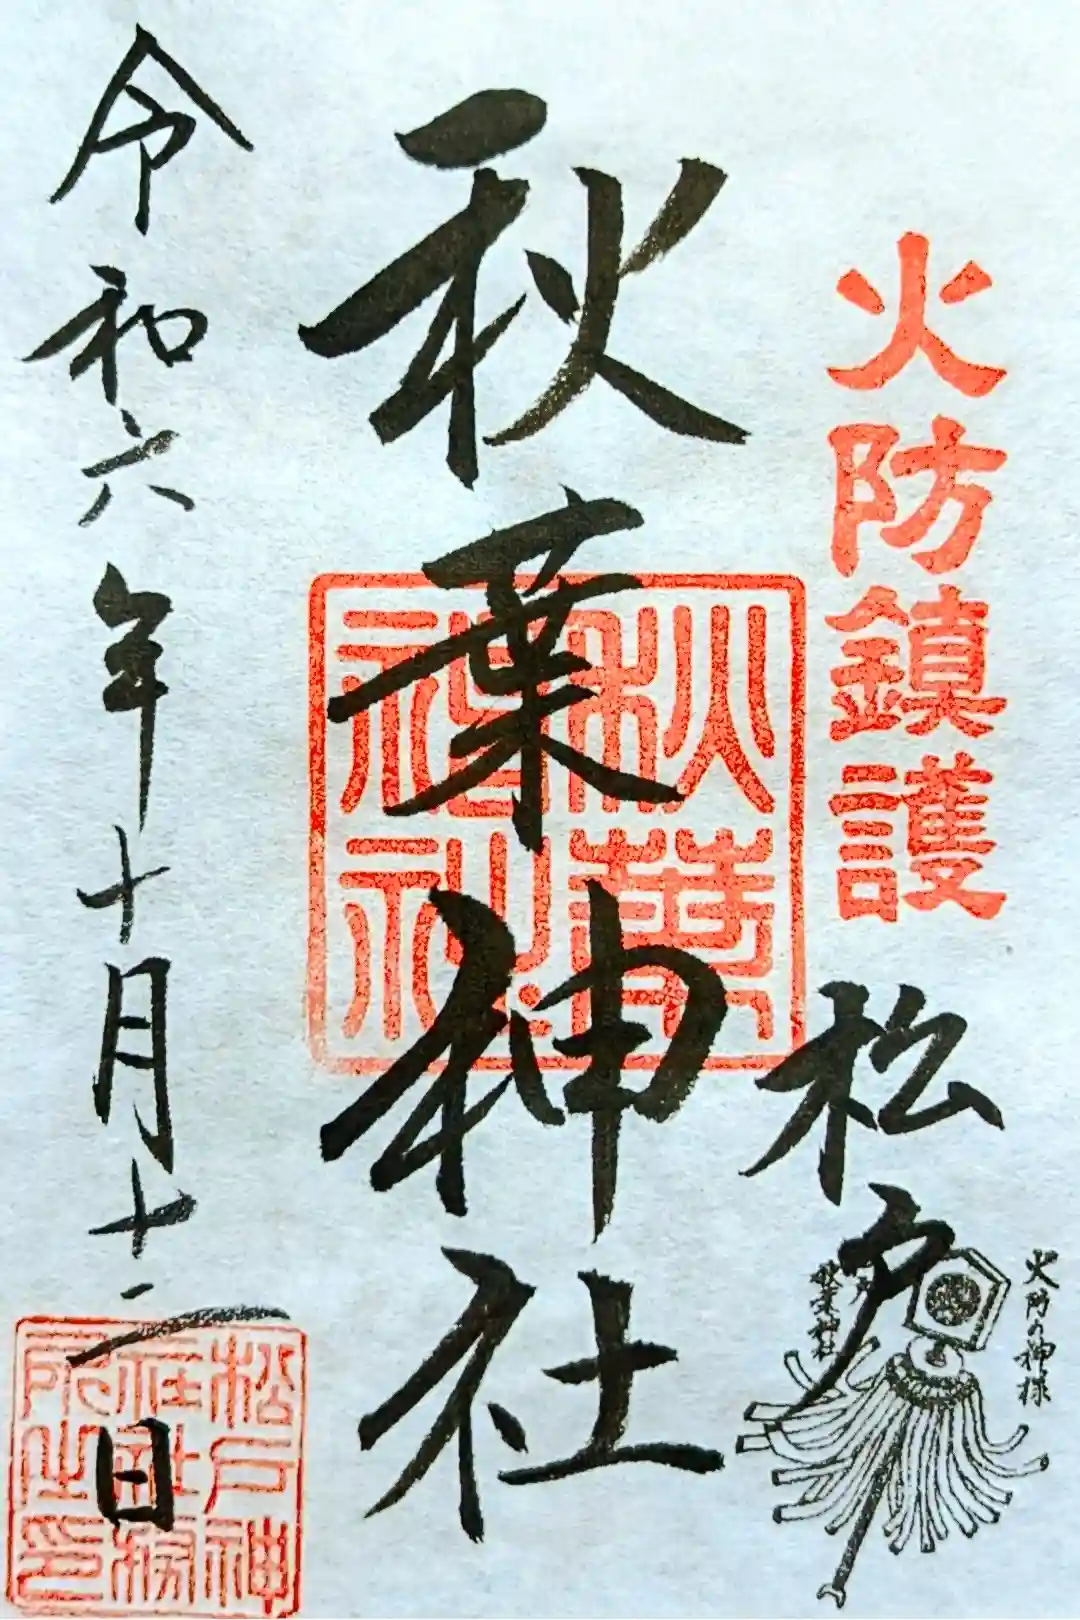 火防鎮護
松戸
火防の神様
秋葉神社
秋葉神社
秋葉
神社
令和六年十月十二日
松戸神
社社務
所之印